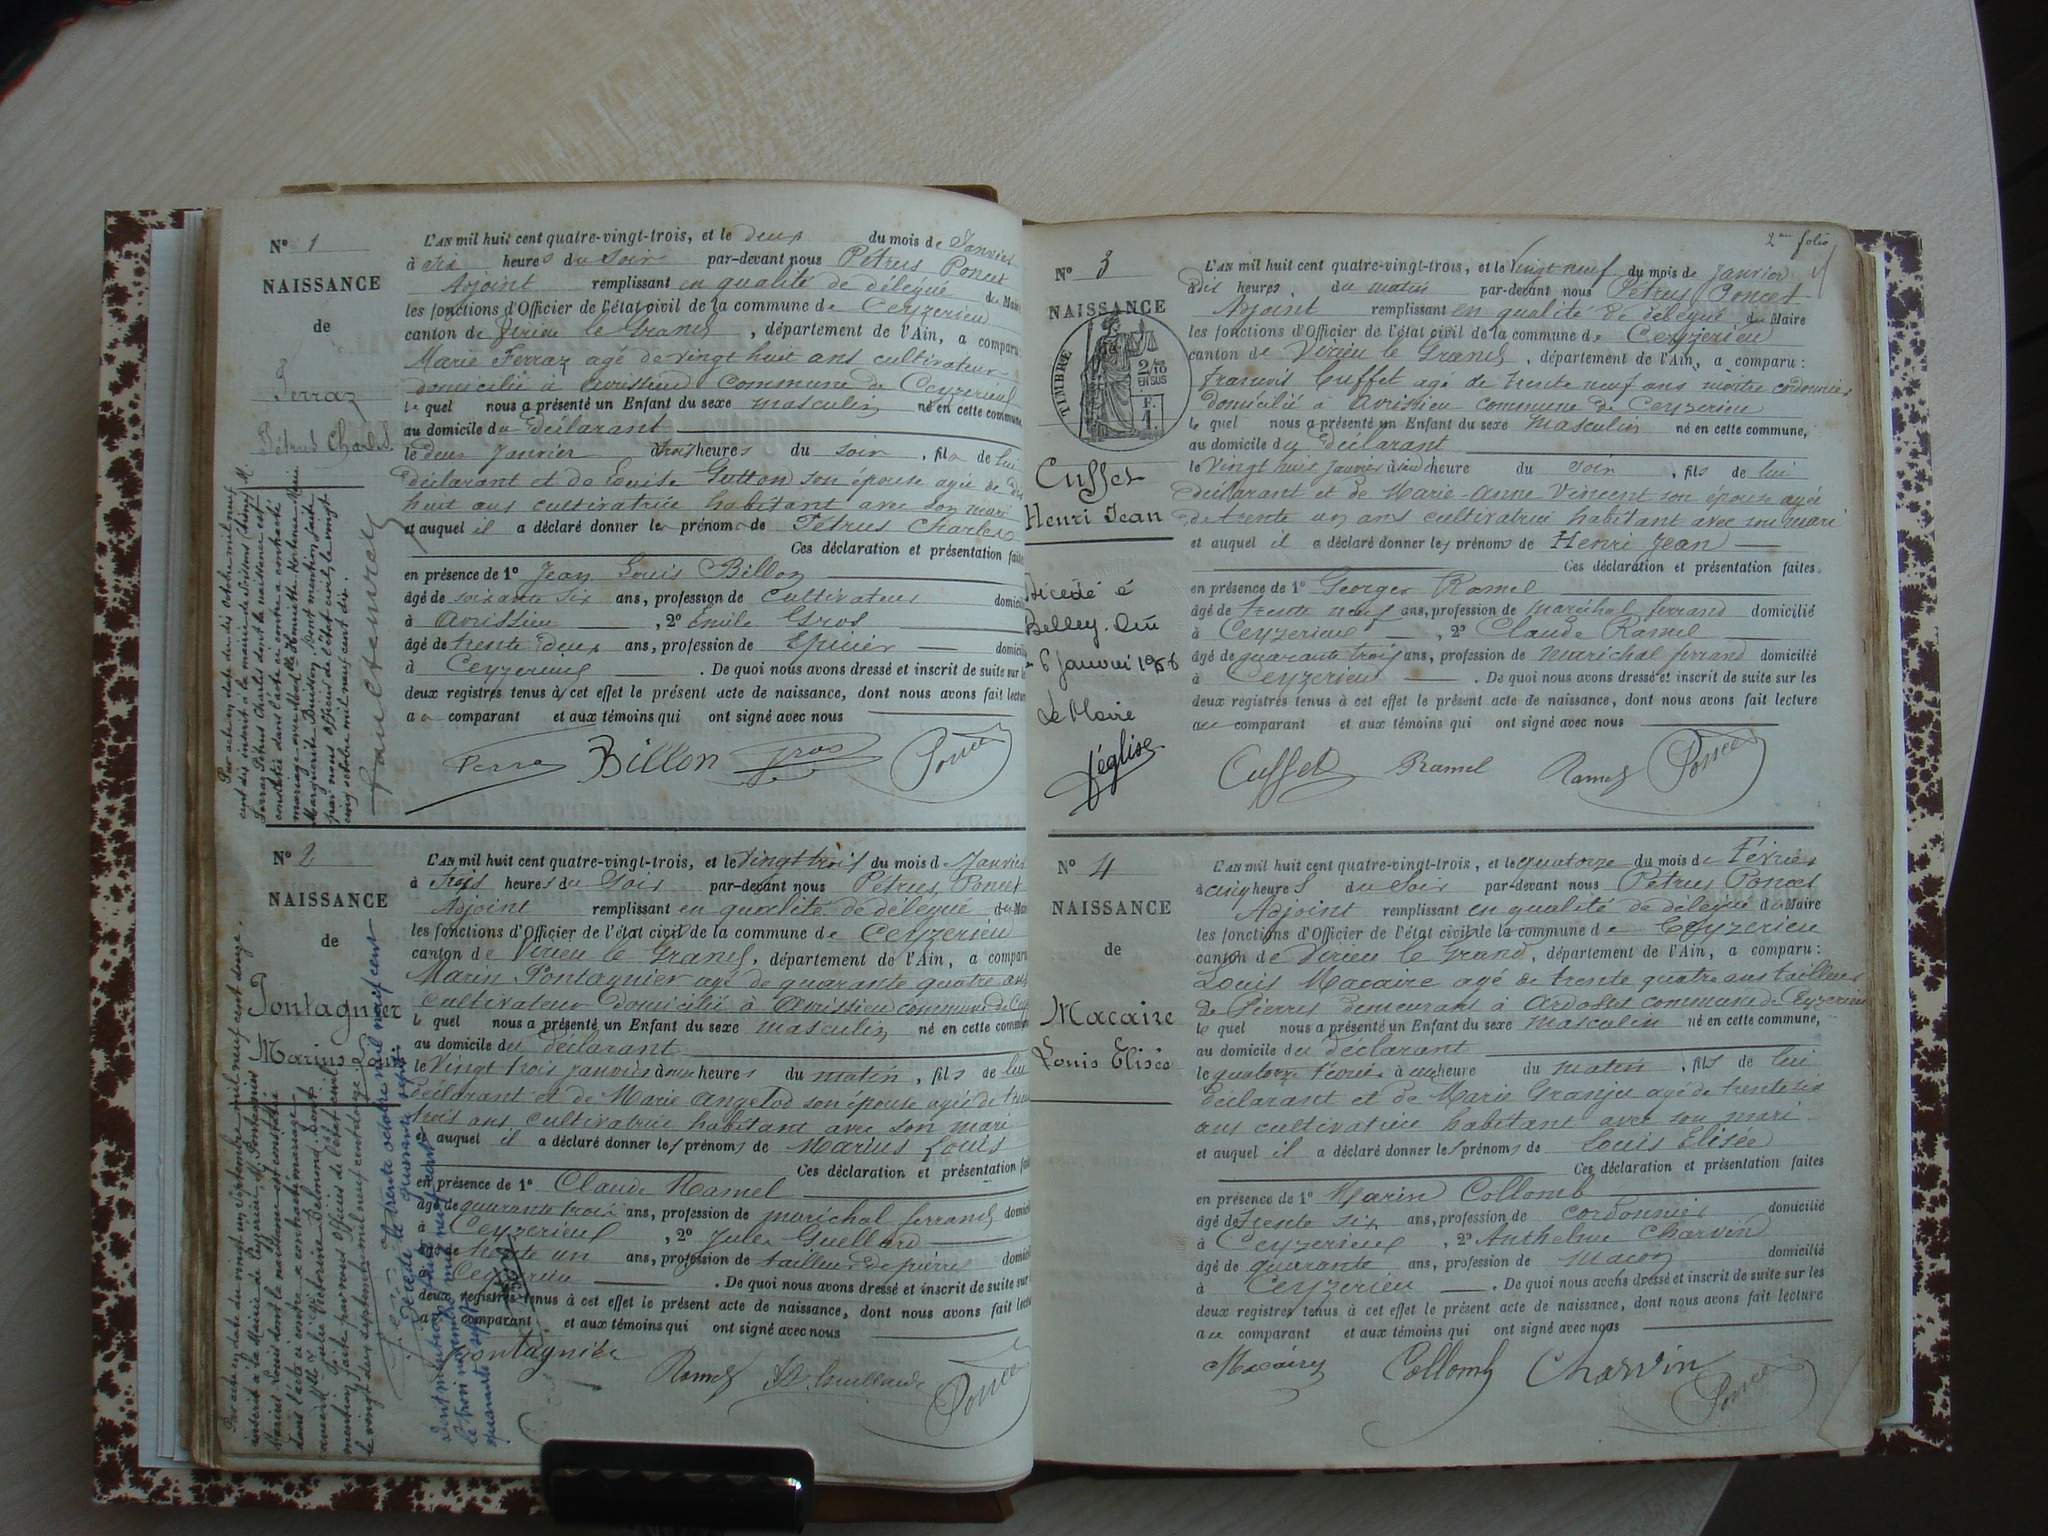 N° 1
NAISSANCE
de
Ferraz
Pétrus Charles
L'AN mil huit cent quatre-vingt-trois, et le deux du mois de Janvier
à six heures du soir par-devant nous Pétrus Poncet
Adjoint remplissant en qualité de délégué du Maire
les fonctions d'Officier de l'état civil de la commune de Ceyzerieu
canton de Virieu le Grand, département de l'Ain, a comparu:
Marie Ferraz agé de vingt huit ans cultivateur
domicilié à Avrissieu commune de Ceyzerieu
le quel nous a présenté un Enfant du sexe masculin né en cette commune,
au domicile du déclarant
le deux Janvier à trois heures du soir, fils de lui
déclarant et de Louise Gutton son épouse agée de dix
huit ans cultivatrice habitant avec son mari
et auquel il a déclaré donner le prénom de Pétrus Charles
Ces déclaration et présentation faites
en présence de 1° Jean Louis Billon
âgé de soixante six ans, profession de cultivateur domicilié
à Avrissieu, 2° Emile Gros
âgé de trente deux ans, profession de Epicier domicilié
à Ceyzerieu. De quoi nous avons dressé et inscrit de suite sur les
deux registres tenus à cet effet le présent acte de naissance, dont nous avons fait lecture
au comparant et aux témoins qui ont signé avec nous
Billon Gros Poncet
Par acte en date du dix octobre mil neuf
cent dix inscrit à la mairie de Soissons (Aisne) M.
Ferraz Pétrus Charles dont la naissance est
constatée dans l'acte ci contre a contracté
mariage avec Mad
Marguerite Buisson. Dont mention faite
par nous Officier de l'état civil, le vingt
cinq octobre mil neuf cent dix.
N° 2
NAISSANCE
de
Pontagnier
Marius Louis
L'AN mil huit cent quatre-vingt-trois, et le vingt trois du mois de Janvier
à trois heures du Soir par-devant nous Pétrus Poncet
Adjoint remplissant en qualité de délégué du Maire
les fonctions d'Officier de l'état civil de la commune de Ceyzerieu
canton de Virieu le Grand, département de l'Ain, a comparu
Marin Pontagnier agé de quarante quatre ans
cultivateur domicilié à Avrissieu commune de Cey
le quel nous a présenté un Enfant du sexe masculin né en cette commune
au domicile du déclarant
le Vingt trois janvier à une heures du matin, fils de lui
déclarant et de Marie Angelod son épouse agée de trente
trois ans cultivatrice habitant avec son mari
et auquel il a déclaré donner les prénoms de Marius Louis
Ces déclaration et présentation faites
en présence de 1° Claude Ramel
âgé de quarante trois ans, profession de maréchal ferrand domicilié
à Ceyzerieu, 2° Jules Guillard
âgé de trente un ans, profession de tailleur de pierres domicilié
à Ceyzerieu. De quoi nous avons dressé et inscrit de suite sur les
deux registres tenus à cet effet le présent acte de naissance, dont nous avons fait lecture
au comparant et aux témoins qui ont signé avec nous
Pontagnier Ramel Poncet
Par acte en date du vingt un septembre mil neuf cent douze,
inscrit à la Mairie de Ceyzérieu, M. Pontagnier
Marius Louis dont la naissance est constatée
dans l'acte ci contre a contracté mariage
avec Mlle
mention faite par nous Officier de l'état civil
le vingt deux septembre mil neuf cent douze
2me folio
N° 3
NAISSANCE
de
TIMBRE
2/10
EN SUS
F.
1.
Cuffet
Henri Jean
Décédé à
Belley. Ain
6 Janvier 1956
Le Maire
L'AN mil huit cent quatre-vingt-trois, et le vingt neuf du mois de Janvier
à dix heures du matin par-devant nous Pétrus Poncet
Adjoint remplissant en qualité de délégué du Maire
les fonctions d'Officier de l'état civil de la commune de Ceyzerieu
canton de Virieu le Grand, département de l'Ain, a comparu:
francois Cuffet agé de trente neuf ans maitre cordonnier
domicilié à Avrissieu commune de Ceyzerieu
le quel nous a présenté un Enfant du sexe masculin né en cette commune,
au domicile du déclarant
le Vingt huit Janvier à une heure du soir, fils de lui
déclarant et de Marie-Anne Vincent son épouse agée
de trente un ans cultivatrice habitant avec son mari
et auquel il a déclaré donner les prénoms de Henri Jean
Ces déclaration et présentation faites
en présence de 1° Georges Ramel
âgé de trente neuf ans, profession de maréchal ferrand domicilié
à Ceyzerieu, 2° Claude Ramel
âgé de quarante trois ans, profession de maréchal ferrand domicilié
à Ceyzerieu. De quoi nous avons dressé et inscrit de suite sur les
deux registres tenus à cet effet le présent acte de naissance, dont nous avons fait lecture
au comparant et aux témoins qui ont signé avec nous
Cuffet Ramel Ramel Poncet
N° 4
NAISSANCE
de
Macaire
Louis Elisée
L'AN mil huit cent quatre-vingt-trois, et le quatorze du mois de Février
à cinq heures du soir par-devant nous Pétrus Poncet
Adjoint remplissant en qualité de délégué du Maire
les fonctions d'Officier de l'état civil de la commune de Ceyzerieu
canton de Virieu le Grand, département de l'Ain, a comparu:
Louis Macaire agé de trente quatre ans tailleur
de Pierres demeurant à Ardosset commune de Ceyzerieu
le quel nous a présenté un Enfant du sexe masculin né en cette commune,
au domicile du déclarant
le quatorze février à une heure du matin, fils de lui
déclarant et de Marie Granju agé de trente six
ans cultivatrice habitant avec son mari
et auquel il a déclaré donner les prénoms de Louis Elisée
Ces déclaration et présentation faites
en présence de 1° Marin Collomb
âgé de trente six ans, profession de cordonnier domicilié
à Ceyzerieu, 2° Anthelme Charvin
âgé de quarante ans, profession de maçon domicilié
à Ceyzerieu. De quoi nous avons dressé et inscrit de suite sur les
deux registres tenus à cet effet le présent acte de naissance, dont nous avons fait lecture
au comparant et aux témoins qui ont signé avec nous
Macaire Collomb Charvin Poncet